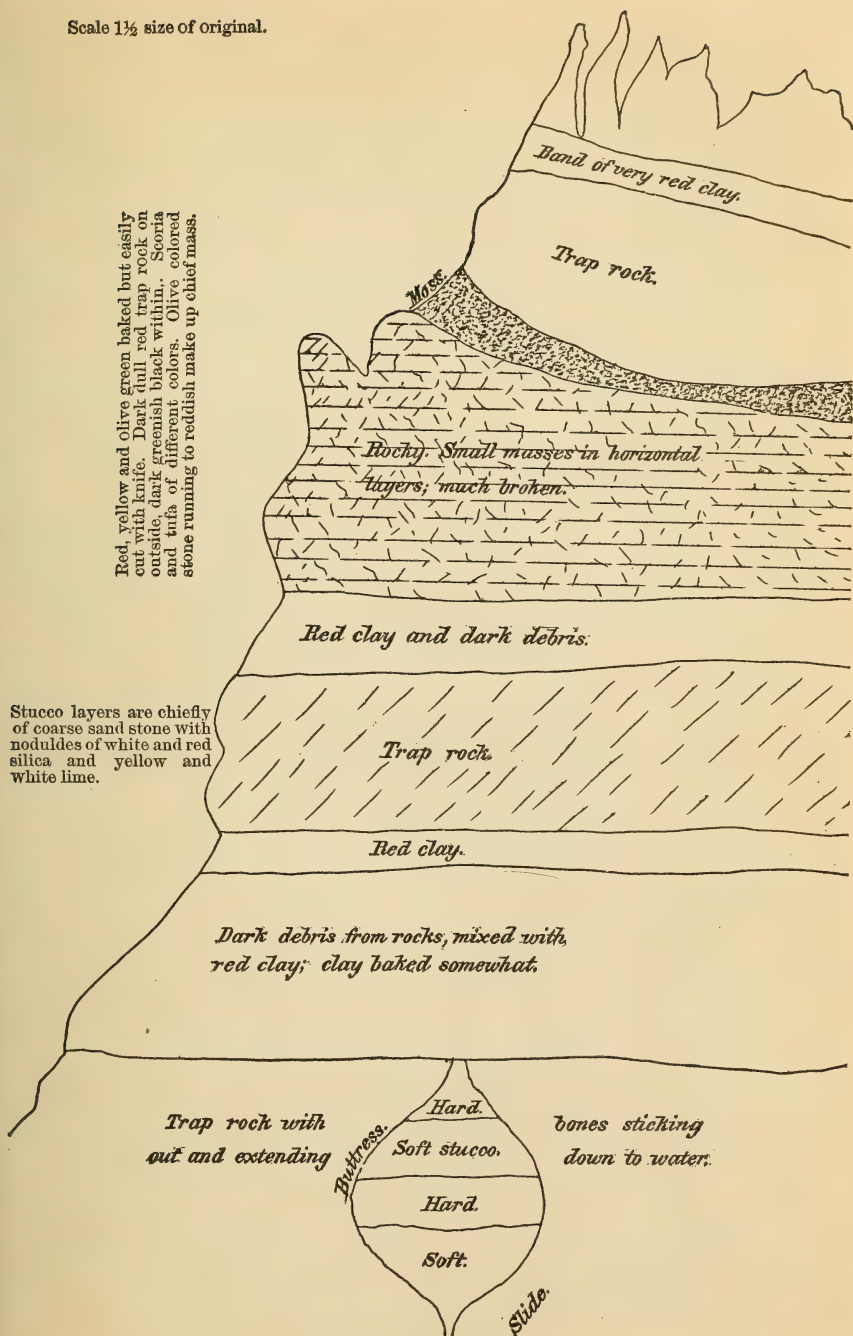 Scale 1½ size of original.
Band of very red clay.
Trap rock.
Moss.
Red, yellow and olive green baked but easily
cut with knife. Dark dull red trap rock on
outside, dark greenish black within,. Scoria
and tufa of different colors. Olive colored
stone running to reddish make up chief mass.
Rocky. Small masses in horizontal
layers; much broken.
Red clay and dark debris.
Stucco layers are chiefly
of coarse sand stone with
noduldes of white and red
silica and yellow and
white lime.
Trap rock.
Red clay.
Dark debris from rocks, mixed with,
red clay; clay baked somewhat.
Trap rock with
out and extending
Buttress.
Hard.
Soft stucco.
Hard.
Soft.
bones sticking
down to water.
Slide.